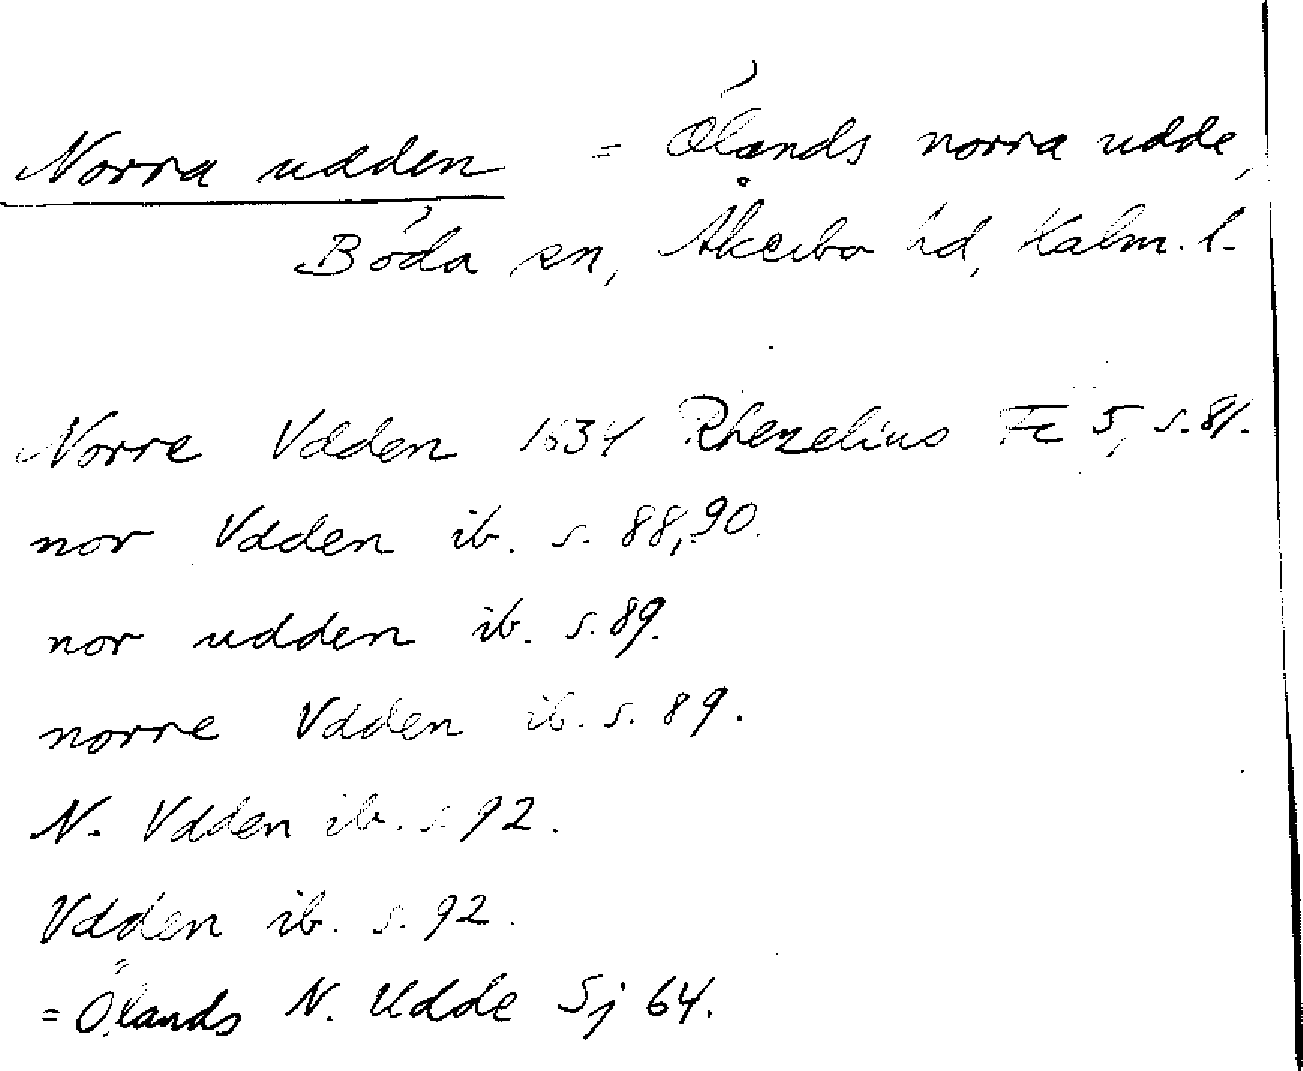 Norra udden = Ölands norra udde,
Böda sn, Åkerbo hd, Kalm. l.
Norre Vdden 1634 Rhezelius Fc 5, s. 81.
nor Vdden ib. s. 88, 90.
nor udden ib. s. 89.
norre Vdden ib. s. 89.
N. Vdden ib. s. 92.
Vdden ib. s. 92.
= Ölands N. Udde Sj 64.